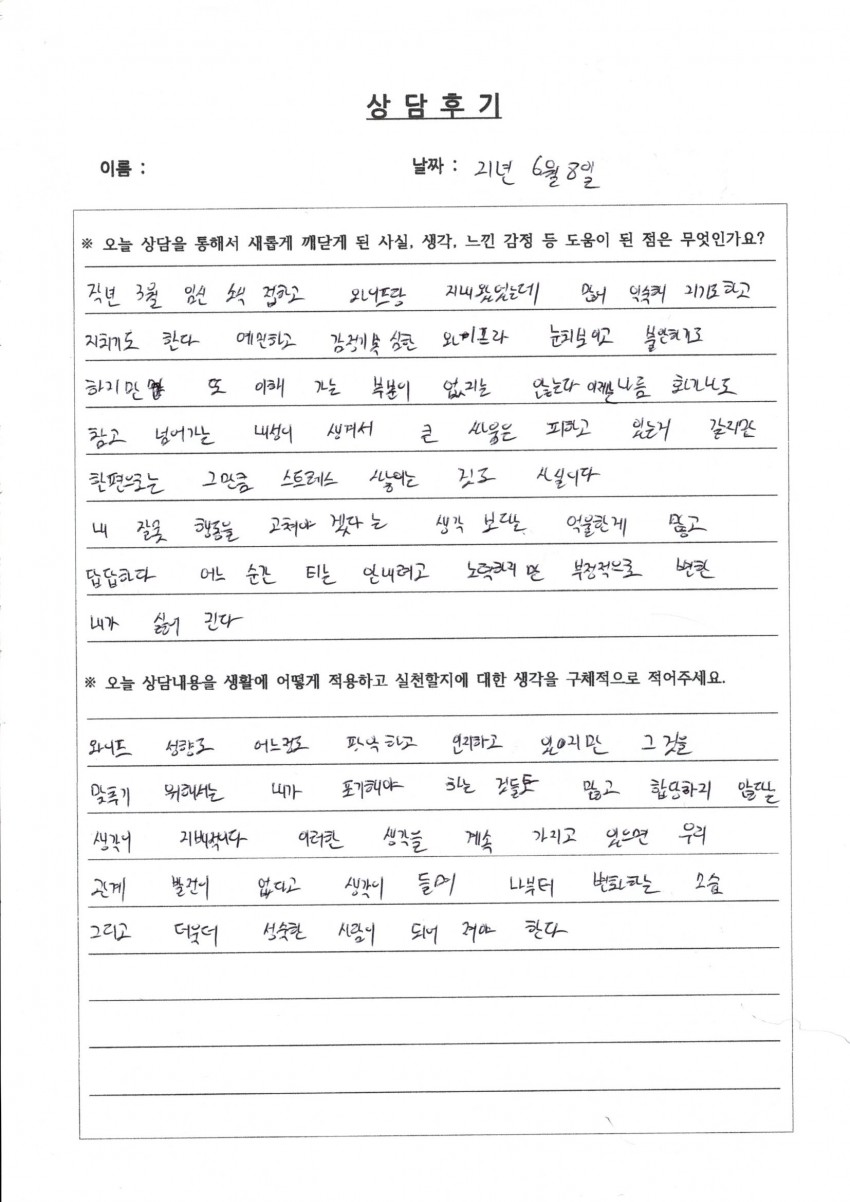 상 담 후 기
이름 : 날짜 : 21년 6월 8일
※ 오늘 상담을 통해서 새롭게 깨닫게 된 사실, 생각, 느낀 감정 등 도움이 된 점은 무엇인가요?
작년 3월 임신 소식 접하고 와이프랑 지내왔었는데 많이 익숙해 지기도하고
지치기도 한다 예민하고 감정기복 심한 와이프라 눈치보이고 불안하기도
하지만 또 이해 가는 부분이 없지는 않는다 이젠 나름 화가나도
참고 넘어가는 내성이 생겨서 큰 싸움은 피하고 있는거 같지만
한편으로는 그만큼 스트레스 쌓이는 것도 사실이다
내 잘못 행동을 고쳐야 겠다 는 생각 보다는 억울한게 많고
답답하다 어느 순간 티는 안내려고 노력하지 만 부정적으로 변한
내가 싫어 진다
※ 오늘 상담내용을 생활에 어떻게 적용하고 실천할지에 대한 생각을 구체적으로 적어주세요.
와이프 성향도 어느정도 파악 하고 인지하고 있어지만 그 것을
맞추기 위해서는 내가 포기해야 하는 것들도 많고 합당하지 않다는
생각이 지배적이다 이러한 생각을 계속 가지고 있으면 우리
관계 발전이 없다고 생각이 들며 나부터 변화하는 모습
그리고 더욱더 성숙한 사람이 되어 져야 한다